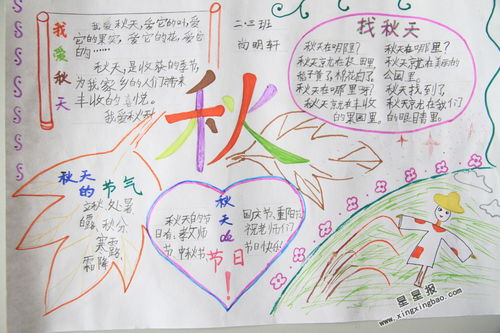 我爱秋天
我爱秋天,爱它的叶,爱
它的果实,爱它的花,爱它
的……
秋天,是收获的季节,
为我家乡的人们带来
丰收的喜悦。
我爱秋天
二·三班
尚明轩
找秋天
秋天在哪里?
秋天就在田里,
稻子黄了,棉花白了。
秋天在哪里呀?
秋天就在丰收
的果园里。
秋天在哪里?
秋天就在美丽的
公园里。
秋天找到了,
秋天就在我们
的眼睛里。
秋
秋天的节气
立秋、处暑
白露、秋分、
寒露、
霜降
秋天de节日!
秋天的节
日有:教师
节、中秋节、
国庆节、重阳节
祝老师们
节日快乐!
星星报
www.xingxingbao.com